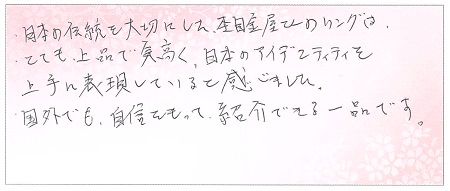 日本の伝統を大切にした、杢目金屋さんのリングは、
とても上品で気高く、日本のアイデンティティを
上手に表現していると感じました。
国外でも、自信をもって紹介できる一品です。